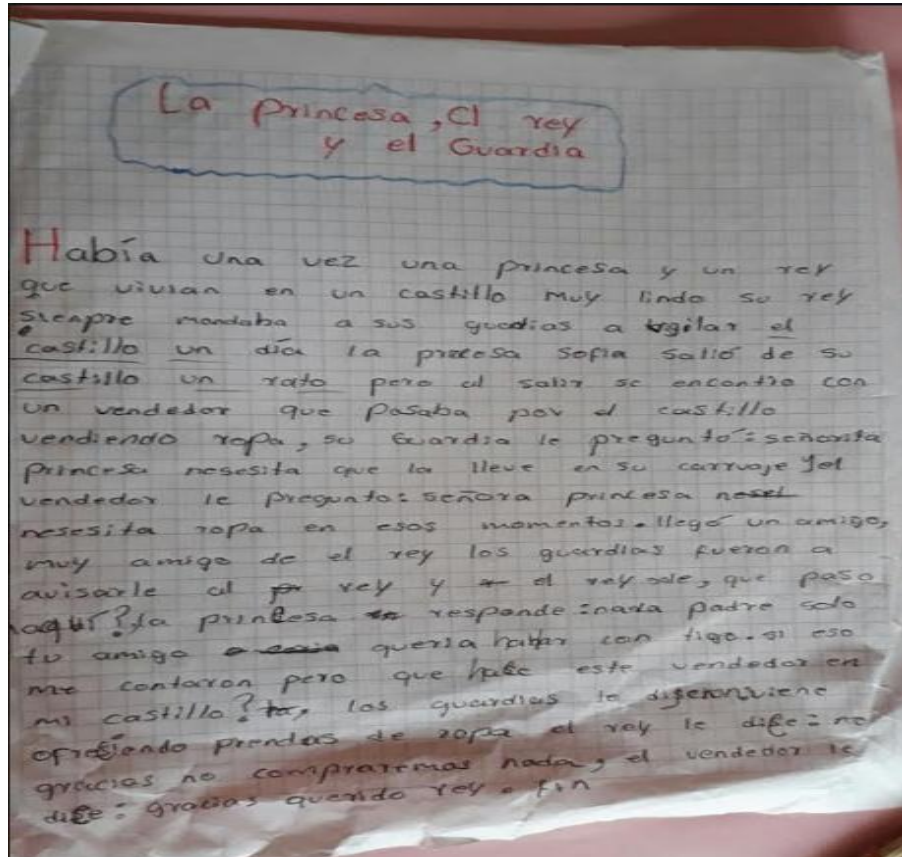 La princesa, El rey
y el Guardia
Había una vez una princesa y un rey
que vivian en un castillo muy lindo su rey
sienpre mandaba a sus guadias a vigilar el
castillo un día la precesa sofia salió de su
castillo un rato pero al salir se encontro con
un vendedor que pasaba por el castillo
vendiendo ropa, su Guardia le pregunto: señorita
princesa nesesita que la lleve en su carruaje Yel
vendedor le pregunto: señora princesa
nesesita ropa en esos momentos. llegó un amigo,
muy amigo de el rey los guardias fueron a
avisarle al rey y el rey sale, que paso
aquí? la princesa responde: nada padre solo
tu amigo queria hablar con tigo. si eso
me contaron pero que hase este vendedor en
mi castillo? los guardias le digeron viene
ofresiendo prendas de ropa el rey le dise: no
gracias no compraremos nada, el vendedor le
dise: gracias querido rey. fin